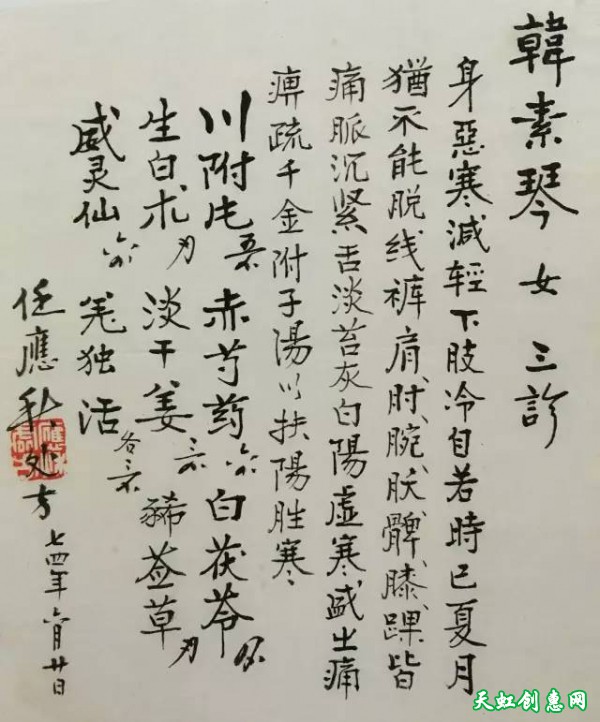 韓素琴 女 三診
身惡寒減輕下肢冷自若時已夏月
猶不能脱线裤肩、肘、腕、肤、髀、膝、踝皆
痛脈沉紧舌淡苔灰白陽虚寒盛之痛
痹疏千金附子湯以扶陽胜寒
川附片 赤芍药 白茯苓
生白术 淡干姜 豨莶草
威灵仙 羌独活 各三钱
任應秋处方 七四年六月廿日
天虹创惠网